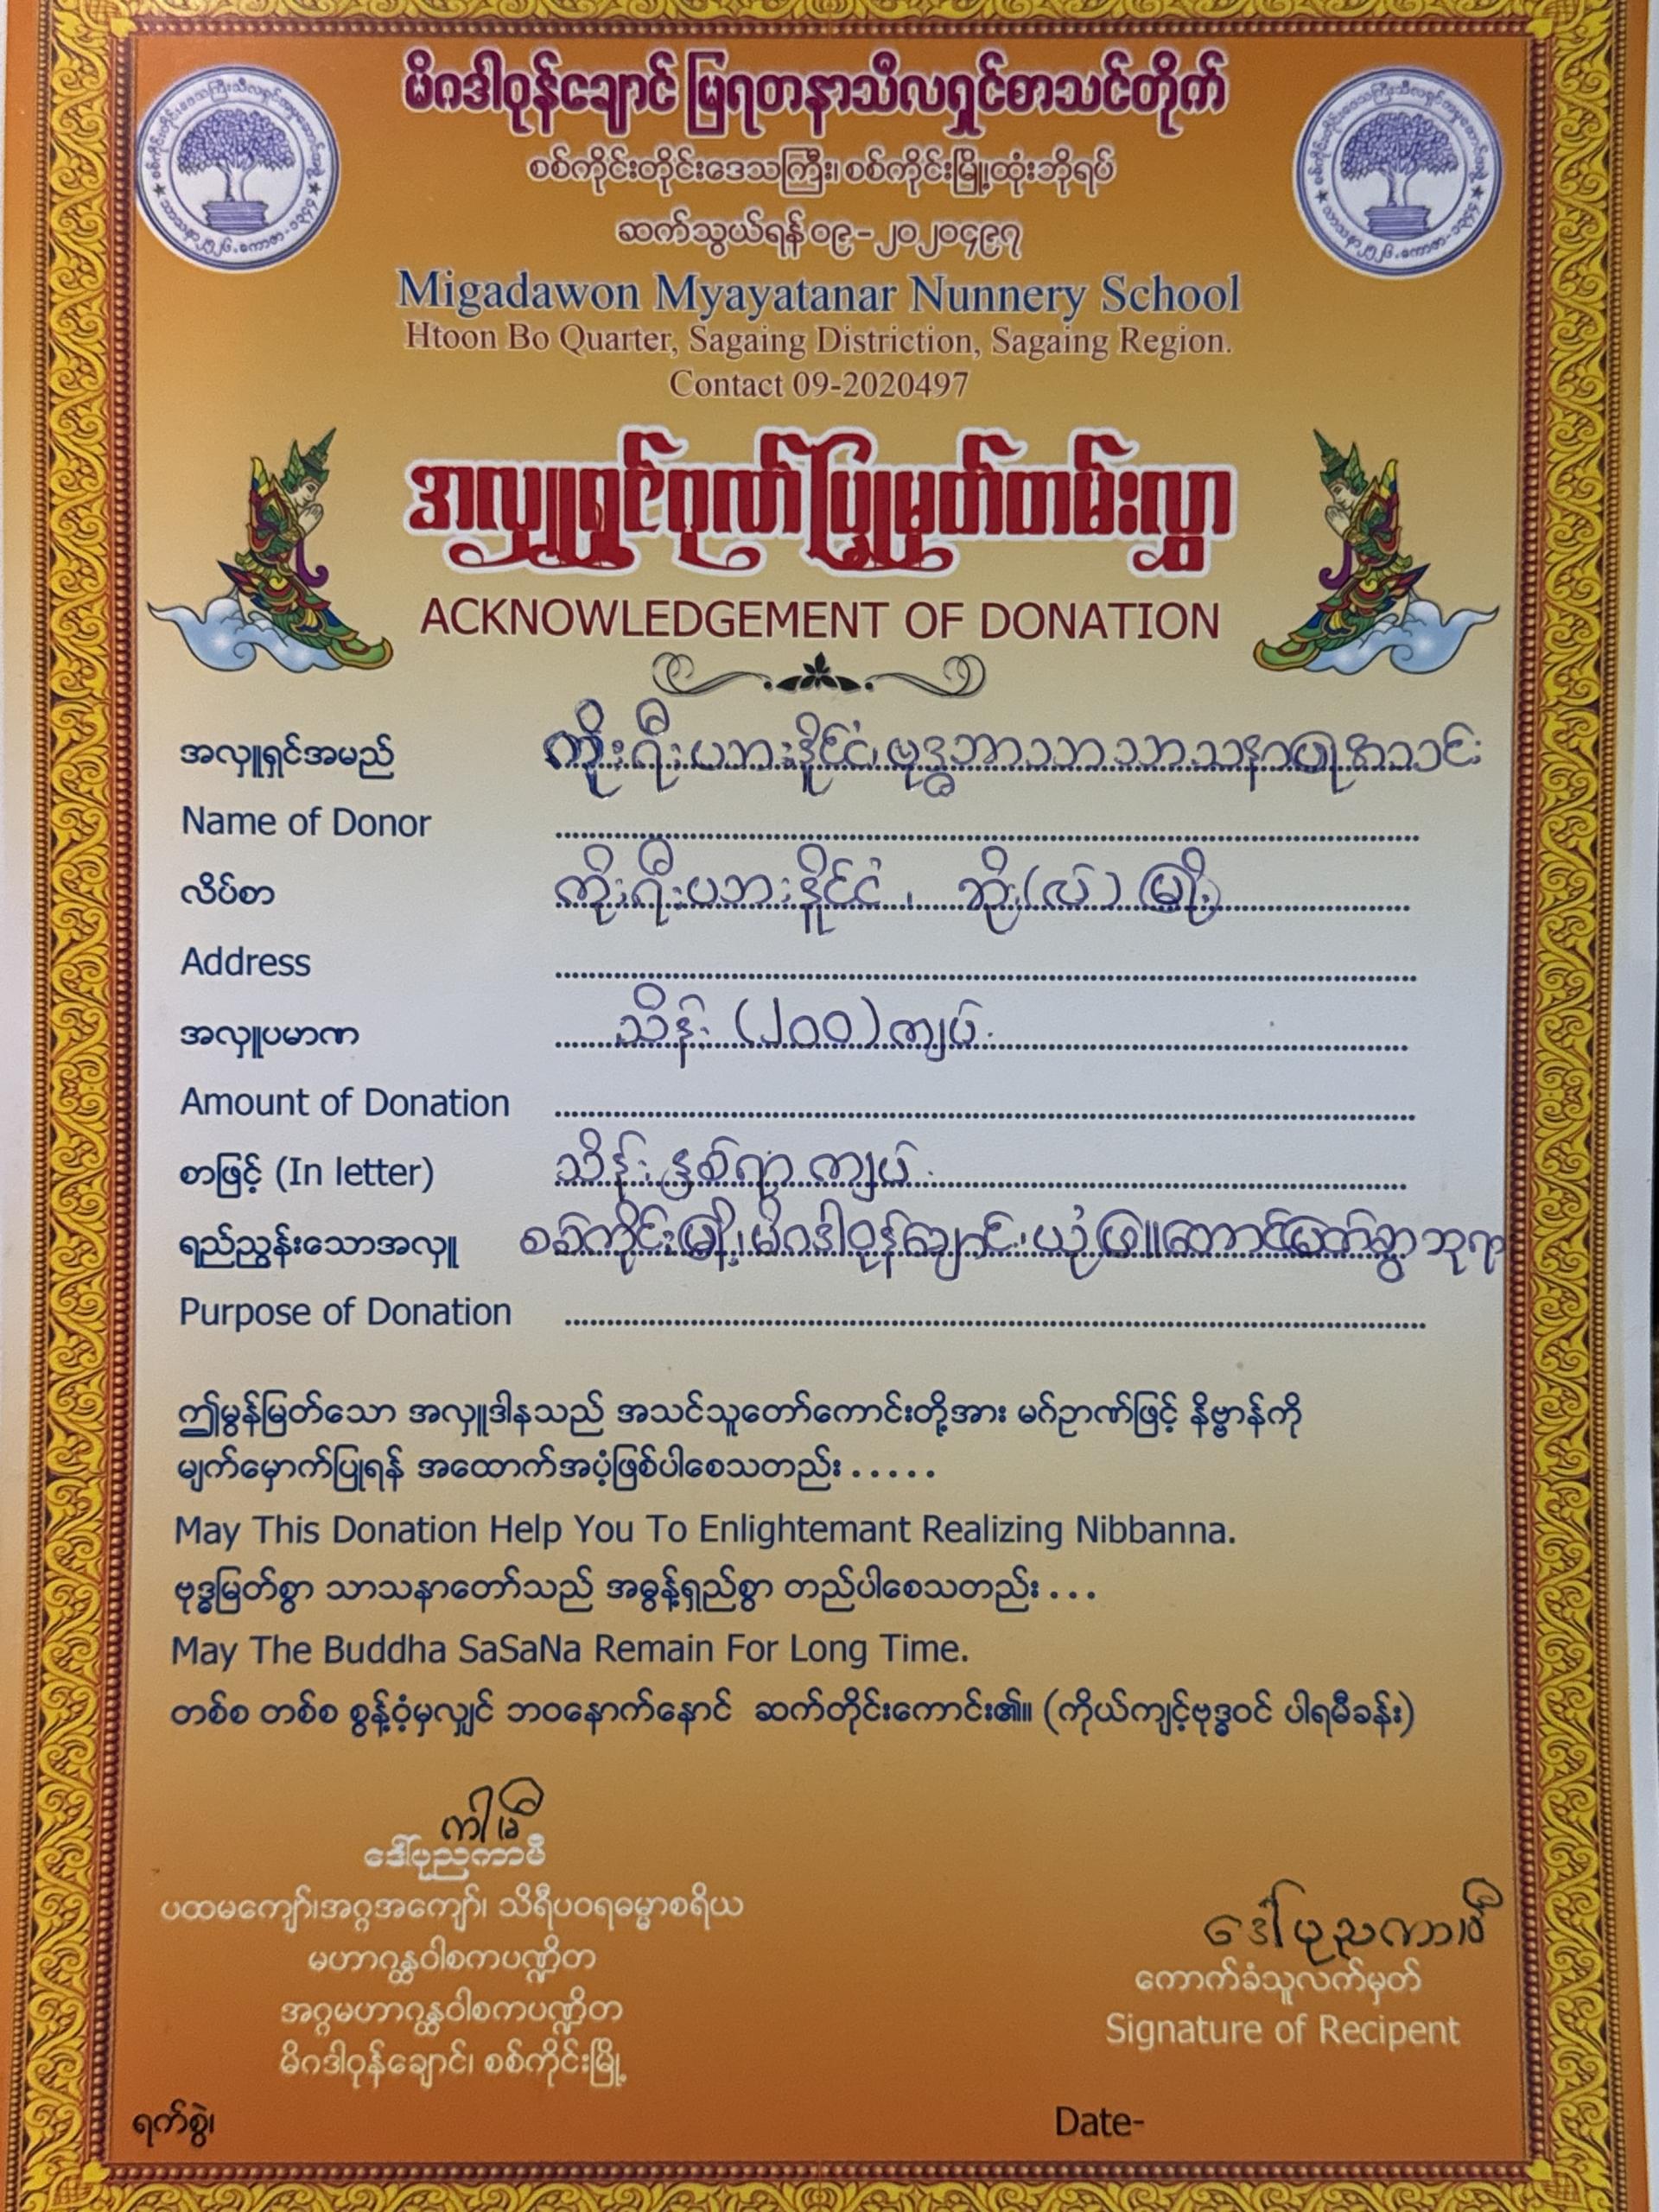 မိဂဒါဝုန်ချောင် မြရတနာသီလရှင်စာသင်တိုက်
စစ်ကိုင်းတိုင်းဒေသကြီး၊ စစ်ကိုင်းမြို့၊ ထုံးဘိုရပ်
ဆက်သွယ်ရန် ၀၉-၂၀၂၀၄၉၇
Migadawon Myayatanar Nunnery School
Htoon Bo Quarter, Sagaing Distriction, Sagaing Region.
Contact 09-2020497
အလှူရှင်ဂုဏ်ပြုမှတ်တမ်းလွှာ
ACKNOWLEDGEMENT OF DONATION
အလှူရှင်အမည် ကိုးရီးယား နိုင်ငံ၊ ဗုဒ္ဓဘာသာ သာသနာပြုအသင်း
Name of Donor
လိပ်စာ ကိုးရီးယား နိုင်ငံ ၊ ဆိုး(လ်) မြို့
Address
အလှူပမာဏ သိန်း (၂၀၀) ကျပ်
Amount of Donation
စာဖြင့် (In letter) သိန်း နှစ်ရာ ကျပ်
ရည်ညွှန်းသောအလှူ စစ်ကိုင်းမြို့၊ မိဂဒါဝုန်ချောင်၊
Purpose of Donation
ဤမွန်မြတ်သော အလှူဒါနသည် အသင်သူတော်ကောင်းတို့အား မဂ်ဉာဏ်ဖြင့် နိဗ္ဗာန်ကို
မျက်မှောက်ပြုရန် အထောက်အပံ့ဖြစ်ပါစေသတည်း . . . . .
May This Donation Help You To Enlightemant Realizing Nibbanna.
ဗုဒ္ဓမြတ်စွာ သာသနာတော်သည် အဓွန့်ရှည်စွာ တည်ပါစေသတည်း . . .
May The Buddha SaSaNa Remain For Long Time.
တစ်စ တစ်စ စွန့်ဝံ့မှလျှင် ဘဝနောက်နောင် ဆက်တိုင်းကောင်း၏။ (ကိုယ်ကျင့်ဗုဒ္ဓဝင် ပါရမီခန်း)
ကာမီ
ဒေါ်ပုညကာမီ
ပထမကျော်၊ အဂ္ဂအကျော်၊ သိရီပဝရဓမ္မာစရိယ
မဟာဂန္ထဝါစကပဏ္ဍိတ
အဂ္ဂမဟာဂန္ထဝါစကပဏ္ဍိတ
မိဂဒါဝုန်ချောင်၊ စစ်ကိုင်းမြို့
ဒေါ်ပုညကာမီ
ကောက်ခံသူလက်မှတ်
Signature of Recipent
ရက်စွဲ၊ Date-